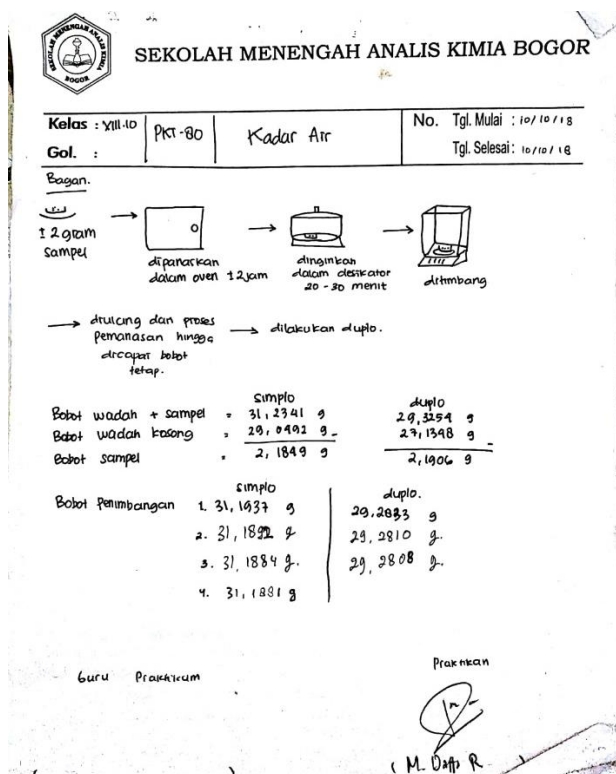 SEKOLAH MENENGAH ANALIS KIMIA BOGOR
SEKOLAH MENENGAH ANALIS KIMIA
BOGOR
Kelas : XIII.10
Gol. :
PKT-80
Kadar Air
No. Tgl. Mulai : 10/10/18
Tgl. Selesai : 10/10/18
Bagan.
± 2 gram
sampel
dipanaskan
dalam oven ± 2jam
dinginkan
dalam desikator
20 - 30 menit
ditimbang
diulang dan proses
pemanasan hingga
dicapai bobot
tetap.
dilakukan duplo.
simplo duplo
Bobot wadah + sampel = 31,2341 g 29,3254 g
Bobot wadah kosong = 29,0492 g - 27,1348 g -
Bobot sampel = 2,1849 g 2,1906 g
simplo duplo.
Bobot Penimbangan 1. 31,1937 g 29,2833 g
2. 31,1892 g 29,2810 g.
3. 31,1884 g. 29,2808 g.
4. 31,1881 g
Guru Praktikum
Praktikan
( M. Daffa R )